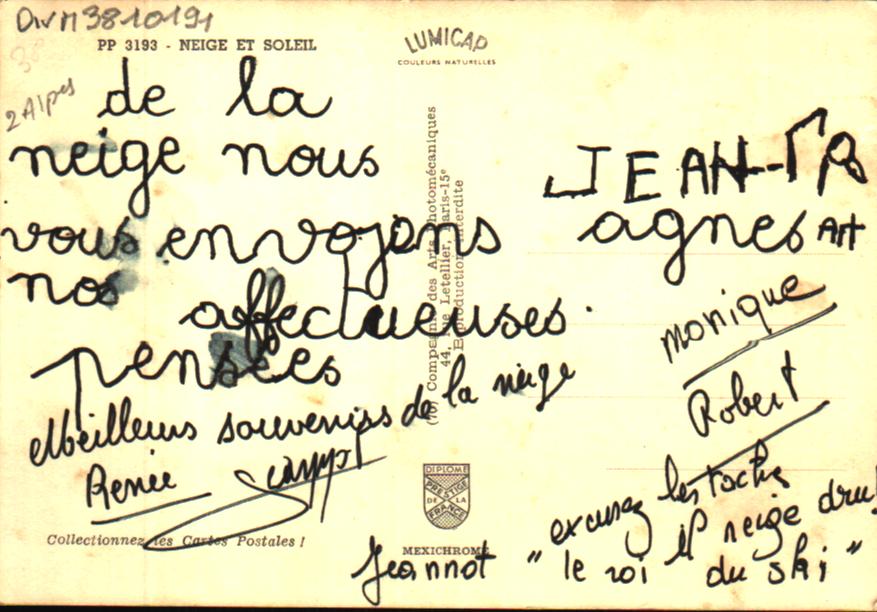 PP 3193 - NEIGE ET SOLEIL
LUMICAP
COULEURS NATURELLES
2 Alpes
de la
neige nous
vous envoyons
nos affectueuses
pensées
Meilleurs souvenirs de la neige
Renée
(10) Compagnie des Arts Photomécaniques
44, rue Letellier, Paris-15e
Reproduction interdite
JEAN-
agnes
monique
Robert
excusez les tache
neige
Jeannot "le roi du ski"
DIPLOME
PRESTIGE
DE LA
FRANCE
Collectionnez les Cartes Postales !
MEXICHROME